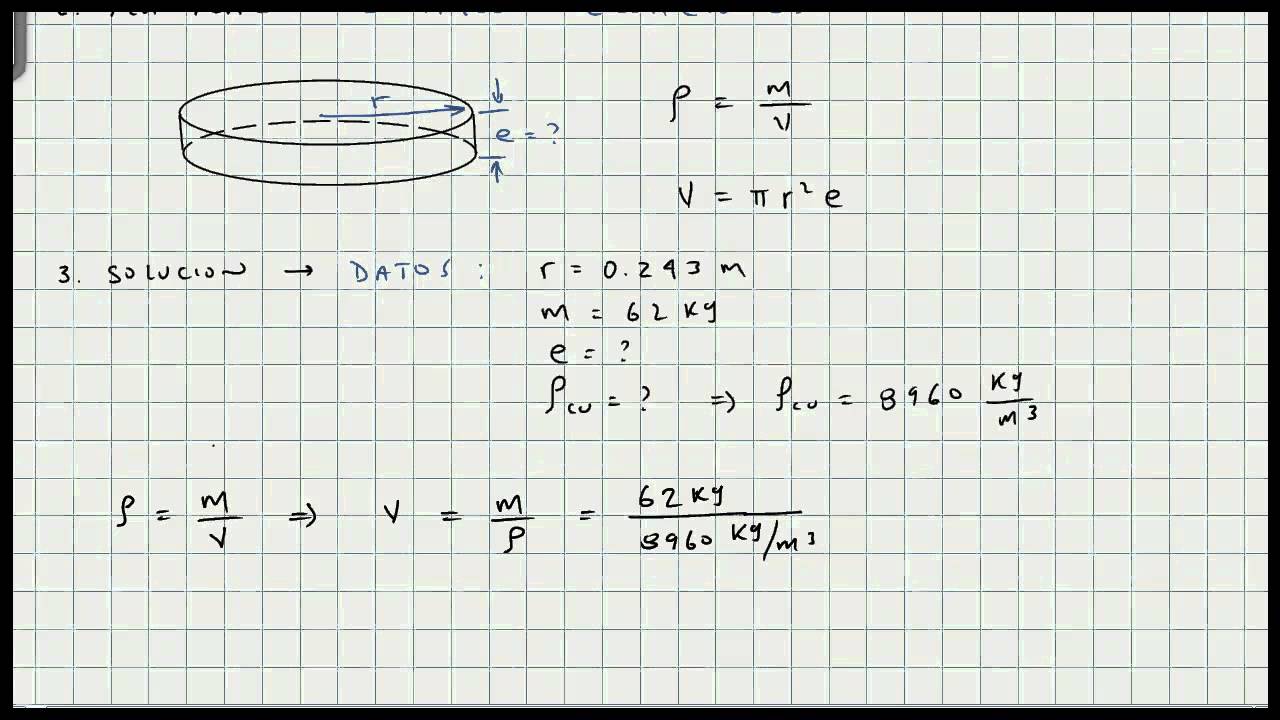 r
e = ?
ρ = m/V
V = π r² e
3. SOLUCION → DATOS : r = 0.243 m
m = 62 Kg
e = ?
ρcu = ? ⇒ ρcu = 8960 Kg/m³
ρ = m/V ⇒ V = m/ρ = 62 Kg / 8960 Kg/m³